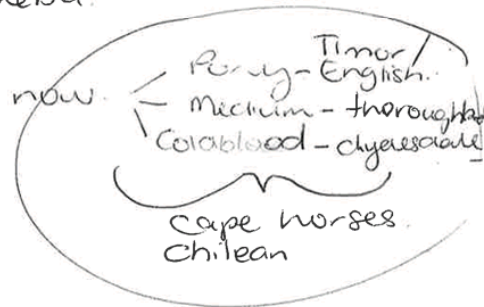 Timor/
now. Pony - English.
Medium - thoroughbred
Coldblood - clydesdale
Cape horses.
Chilean